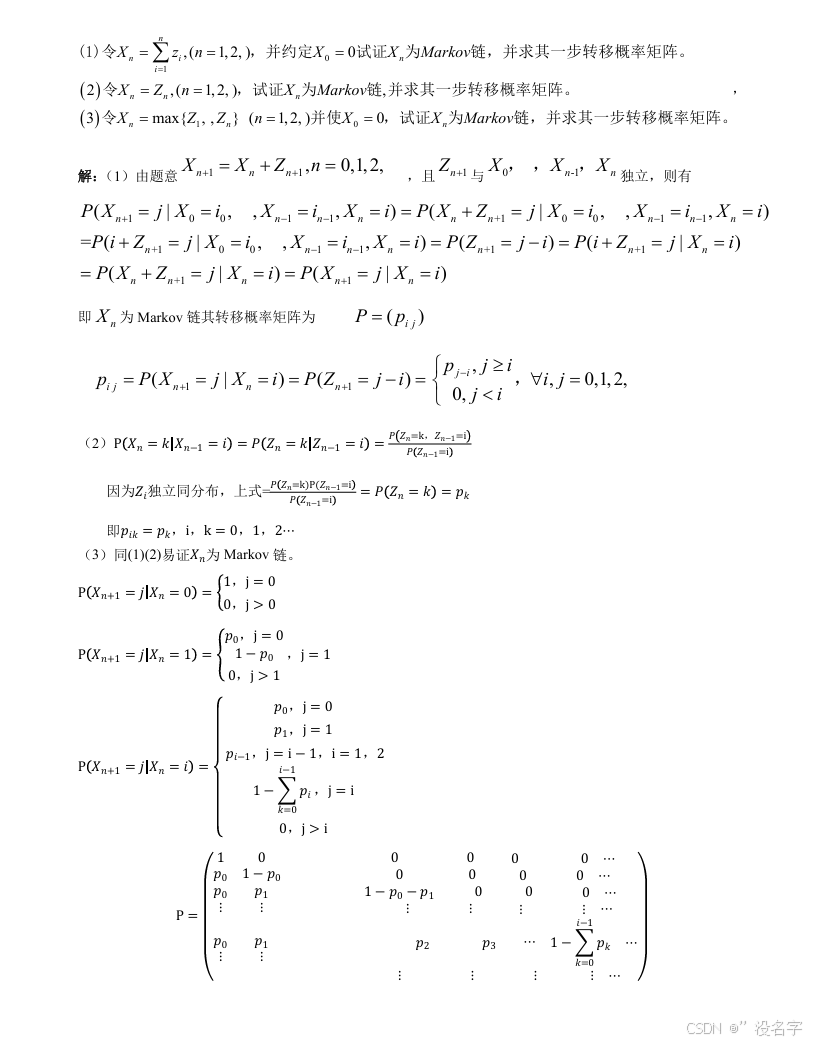 (1) 令Xₙ = ∑ᵢ₌₁ⁿ zᵢ,(n = 1,2, )，并约定X₀ = 0试证Xₙ为Markov链，并求其一步转移概率矩阵。
(2) 令Xₙ = Zₙ,(n = 1,2, )，试证Xₙ为Markov链,并求其一步转移概率矩阵。 ，
(3) 令Xₙ = max{Z₁, ,Zₙ} (n = 1,2, )并使X₀ = 0，试证Xₙ为Markov链，并求其一步转移概率矩阵。
解:（1）由题意 Xₙ₊₁ = Xₙ + Zₙ₊₁, n = 0,1,2, ，且 Zₙ₊₁ 与 X₀， ，Xₙ₋₁，Xₙ 独立，则有
P(Xₙ₊₁ = j | X₀ = i₀, ,Xₙ₋₁ = iₙ₋₁, Xₙ = i) = P(Xₙ + Zₙ₊₁ = j | X₀ = i₀, ,Xₙ₋₁ = iₙ₋₁, Xₙ = i)
=P(i + Zₙ₊₁ = j | X₀ = i₀, ,Xₙ₋₁ = iₙ₋₁, Xₙ = i) = P(Zₙ₊₁ = j − i) = P(i + Zₙ₊₁ = j | Xₙ = i)
= P(Xₙ + Zₙ₊₁ = j | Xₙ = i) = P(Xₙ₊₁ = j | Xₙ = i)
即 Xₙ 为 Markov 链其转移概率矩阵为 P = (p_{i j})
p_{i j} = P(Xₙ₊₁ = j | Xₙ = i) = P(Zₙ₊₁ = j − i) = { p_{j−i}, j ≥ i
0, j < i ，∀i, j = 0,1,2,
（2）P(Xₙ = k|Xₙ₋₁ = i) = P(Zₙ = k|Zₙ₋₁ = i) = P(Zₙ=k，Zₙ₋₁=i)/P(Zₙ₋₁=i)
因为Zᵢ独立同分布，上式=P(Zₙ=k)P(Zₙ₋₁=i)/P(Zₙ₋₁=i) = P(Zₙ = k) = pₖ
即p_{ik} = pₖ，i，k = 0，1，2⋯
（3）同(1)(2)易证Xₙ为 Markov 链。
P(Xₙ₊₁ = j|Xₙ = 0) = { 1，j = 0
0，j > 0
P(Xₙ₊₁ = j|Xₙ = 1) = { p₀，j = 0
1 − p₀ ，j = 1
0，j > 1
P(Xₙ₊₁ = j|Xₙ = i) = { p₀，j = 0
p₁，j = 1
pᵢ₋₁，j = i − 1，i = 1，2
1 − ∑_{k=0}^{i−1} pᵢ，j = i
0，j > i
P = ( 1 0 0 0 0 0 ⋯
p₀ 1 − p₀ 0 0 0 0 ⋯
p₀ p₁ 1 − p₀ − p₁ 0 0 0 ⋯
⋮ ⋮ ⋮ ⋮ ⋮ ⋮ ⋯
p₀ p₁ p₂ p₃ ⋯ 1 − ∑_{k=0}^{i−1} pₖ ⋯
⋮ ⋮ ⋮ ⋮ ⋮ ⋮ ⋯ )
CSDN @”没名字